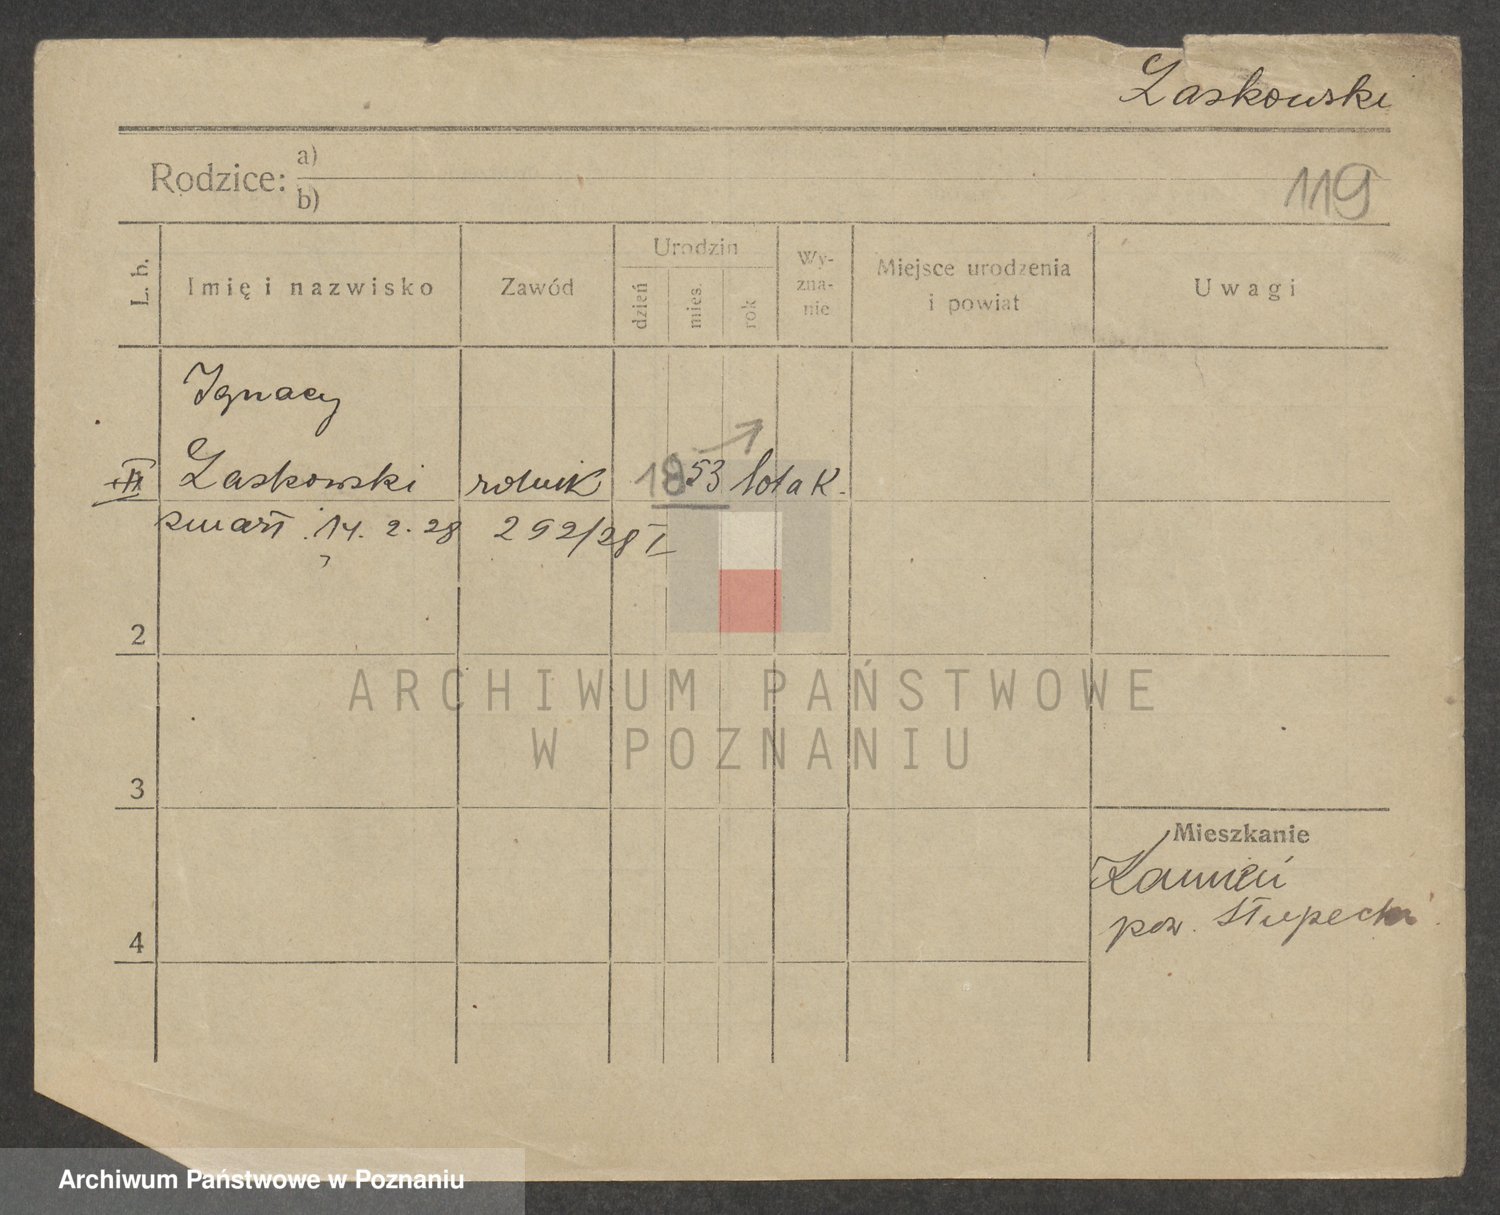 Laskowski
Rodzice: a)
b)
119
L. b.
Imię i nazwisko
Zawód
Urodzin
dzień
mies.
rok
Wy-
zna-
nie
Miejsce urodzenia
i powiat
Uwagi
Ignacy
Laskowski rolnik 18 53 lota K.
zmarł 14. 2. 28 292/28 I
2
ARCHIWUM PAŃSTWOWE
W POZNANIU
3
Mieszkanie
Kamień
pow. Słupecki
4
Archiwum Państwowe w Poznaniu